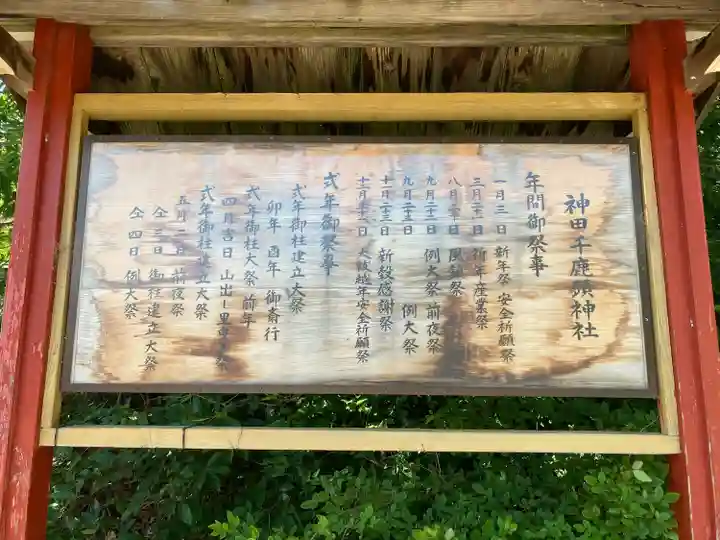 神田千鹿頭神社
年間御祭事
一月三日 新年祭 安全祈願祭
三月二十一日 祈年産業祭
八月 日 風 祭
九月二十二日 例大祭 前夜祭
九月二十三日 例大祭
十月二十三日 新穀感謝祭
十二月三十一日 大 越年安全祈願祭
式年御祭事
式年御柱建立大祭
卯年 酉年 御斎行
式年御柱大祭 前年
四月吉日 山出し里
式年御柱建立大祭
五月二日 前夜祭
仝 三日 御柱建立大祭
仝 四日 例大祭